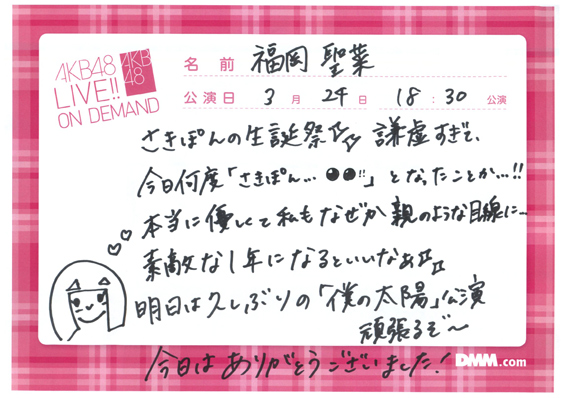 AKB48
LIVE!!
ON DEMAND
AKB
48
名前 福岡 聖菜
公演日 3月24日 18:30 公演
さきぽんの生誕祭 謙虚すぎて、
今日何度「さきぽん…●●!!」となったことか…!!
本当に優しくて私もなぜか親のような目線に…
素敵な1年になるといいなぁ
明日は久しぶりの「僕の太陽」公演
頑張るぞ〜
今日はありがとうございました!
DMM.com